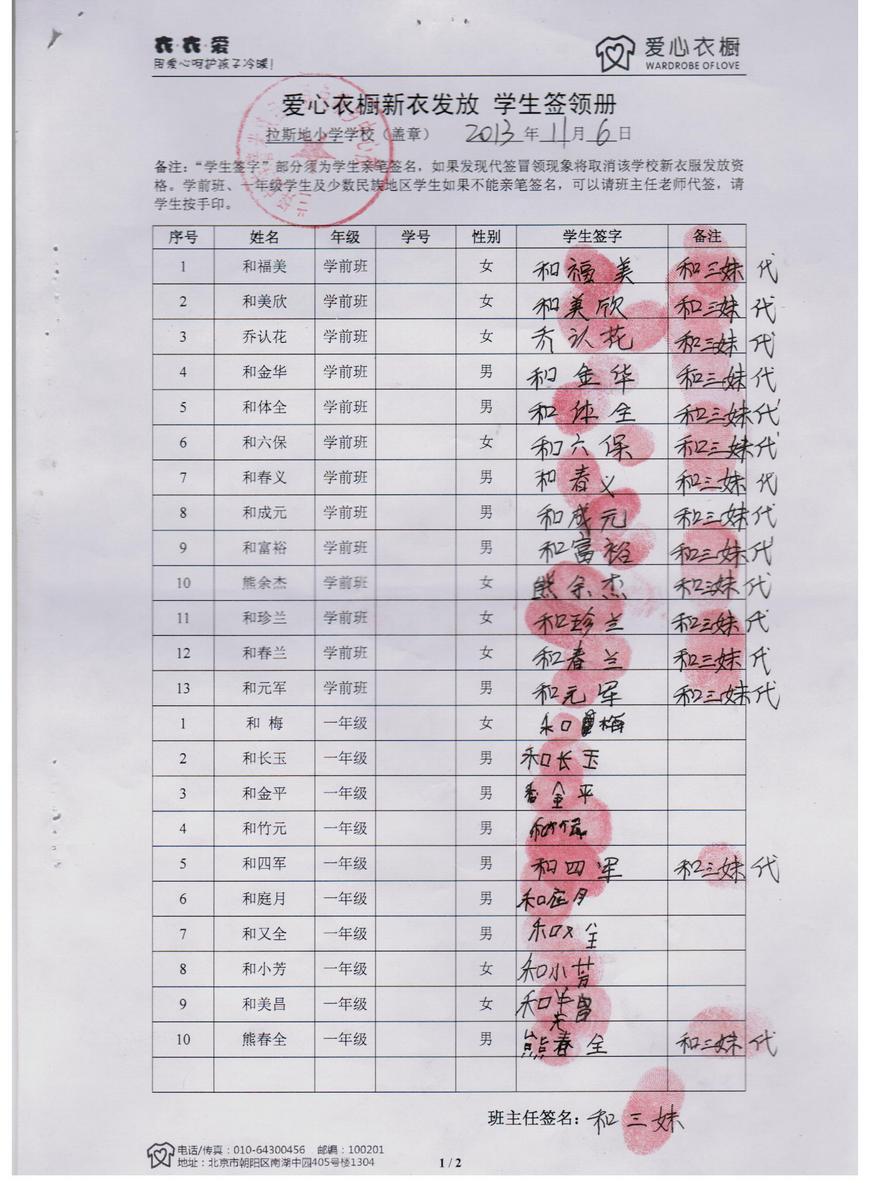 衣·衣·爱
用爱心呵护孩子冷暖!
爱心衣橱
WARDROBE OF LOVE
爱心衣橱新衣发放 学生签领册
拉斯地小学学校（盖章） 2013 年 11 月 6 日
备注：“学生签字”部分须为学生亲笔签名，如果发现代签冒领现象将取消该学校新衣服发放资
格。学前班、一年级学生及少数民族地区学生如果不能亲笔签名，可以请班主任老师代签，请
学生按手印。
序号 姓名 年级 学号 性别 学生签字 备注
1 和福美 学前班 女 和福美 和三妹代
2 和美欣 学前班 女 和美欣 和三妹代
3 乔认花 学前班 女 乔认花 和三妹代
4 和金华 学前班 男 和金华 和三妹代
5 和体全 学前班 男 和体全 和三妹代
6 和六保 学前班 女 和六保 和三妹代
7 和春义 学前班 男 和春义 和三妹代
8 和成元 学前班 男 和成元 和三妹代
9 和富裕 学前班 男 和富裕 和三妹代
10 熊余杰 学前班 女 熊余杰 和三妹代
11 和珍兰 学前班 女 和珍兰 和三妹代
12 和春兰 学前班 女 和春兰 和三妹代
13 和元军 学前班 男 和元军 和三妹代
1 和 梅 一年级 女 和梅
2 和长玉 一年级 男 和长玉
3 和金平 一年级 男 金平
4 和竹元 一年级 男
5 和四军 一年级 男 和四军 和三妹代
6 和庭月 一年级 男 和庭月
7 和又全 一年级 男 和又全
8 和小芳 一年级 女 和小
9 和美昌 一年级 女 和美昌
10 熊春全 一年级 男 熊春全 和三妹代
班主任签名：和三妹
电话/传真：010-64300456 邮编：100201
地址：北京市朝阳区南湖中园405号楼1304
1 / 2